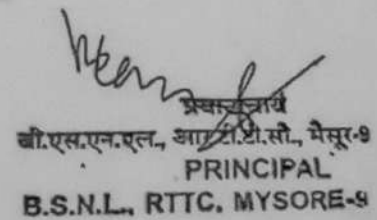 प्रधानाचार्य
बी.एस.एन.एल., आर.टी.टी.सी., मैसूर-9
PRINCIPAL
B.S.N.L., RTTC, MYSORE-9